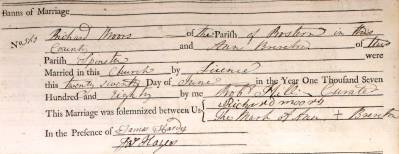 Banns of Marriage
No. Richard Moors of the Parish of Rostern in this
County and Ann of this
Parish Spinster were
Married in this Church by Licence
this twenty Day of June in the Year One Thousand Seven
Hundred and Eighty by me Robt. Hill Curate
This Marriage was solemnized between Us { Richard moors
the Mark of Ann +
In the Presence of { James Hardy